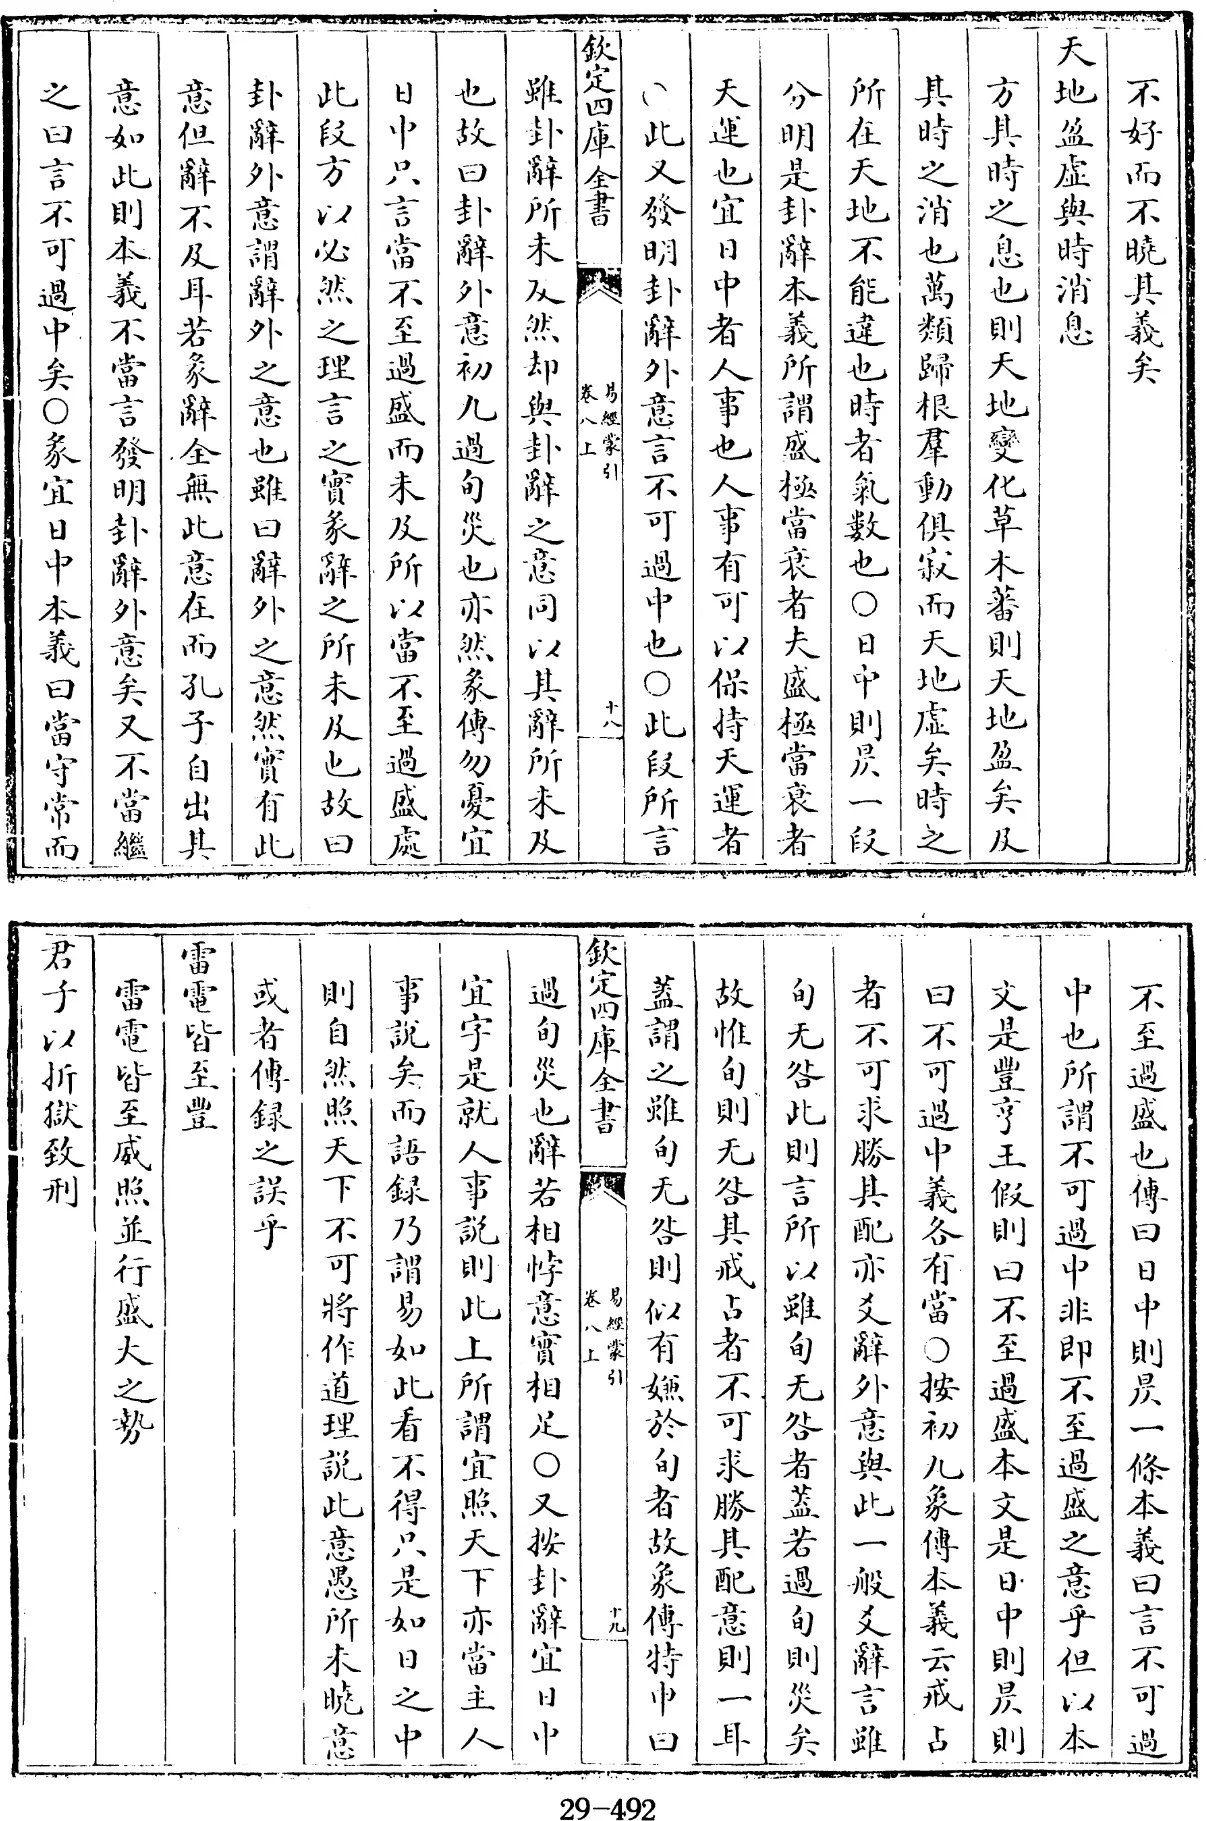 不好而不曉其義矣
天地盈虛與時消息
方其時之息也則天地變化草木蕃則天地盈矣及
其時之消也萬類歸根羣動俱寂而天地虛矣時之
所在天地不能違也時者氣數也○日中則昃一段
分明是卦辭本義所謂盛極當衰者夫盛極當衰者
天運也宜日中者人事也人事有可以保持天運者
○此又發明卦辭外意言不可過中也○此段所言
欽定四庫全書
易經蒙引
卷八上
十八
雖卦辭所未及然却與卦辭之意同以其辭所未及
也故曰卦辭外意初九過旬災也亦然彖傳勿憂宜
日中只言當不至過盛而未及所以當不至過盛處
此段方以必然之理言之實彖辭之所未及也故曰
卦辭外意謂辭外之意也雖曰辭外之意然實有此
意但辭不及耳若彖辭全無此意在而孔子自出其
意如此則本義不當言發明卦辭外意矣又不當繼
之曰言不可過中矣○彖宜日中本義曰當守常而
不至過盛也傳曰日中則昃一條本義曰言不可過
中也所謂不可過中非即不至過盛之意乎但以本
文是豐亨王假則曰不至過盛本文是日中則昃則
曰不可過中義各有當○按初九象傳本義云戒占
者不可求勝其配亦爻辭外意與此一般爻辭言雖
旬无咎此則言所以雖旬无咎者蓋若過旬則災矣
故惟旬則无咎其戒占者不可求勝其配意則一耳
蓋謂之雖旬无咎則似有嫌於旬者故象傳特申曰
欽定四庫全書
易經蒙引
卷八上
十九
過旬災也辭若相悖意實相足○又按卦辭宜日中
宜字是就人事說則此上所謂宜照天下亦當主人
事說矣而語録乃謂易如此看不得只是如日之中
則自然照天下不可將作道理說此意愚所未曉意
或者傳録之誤乎
雷電皆至豐
雷電皆至威照並行盛大之勢
君子以折獄致刑
29-492